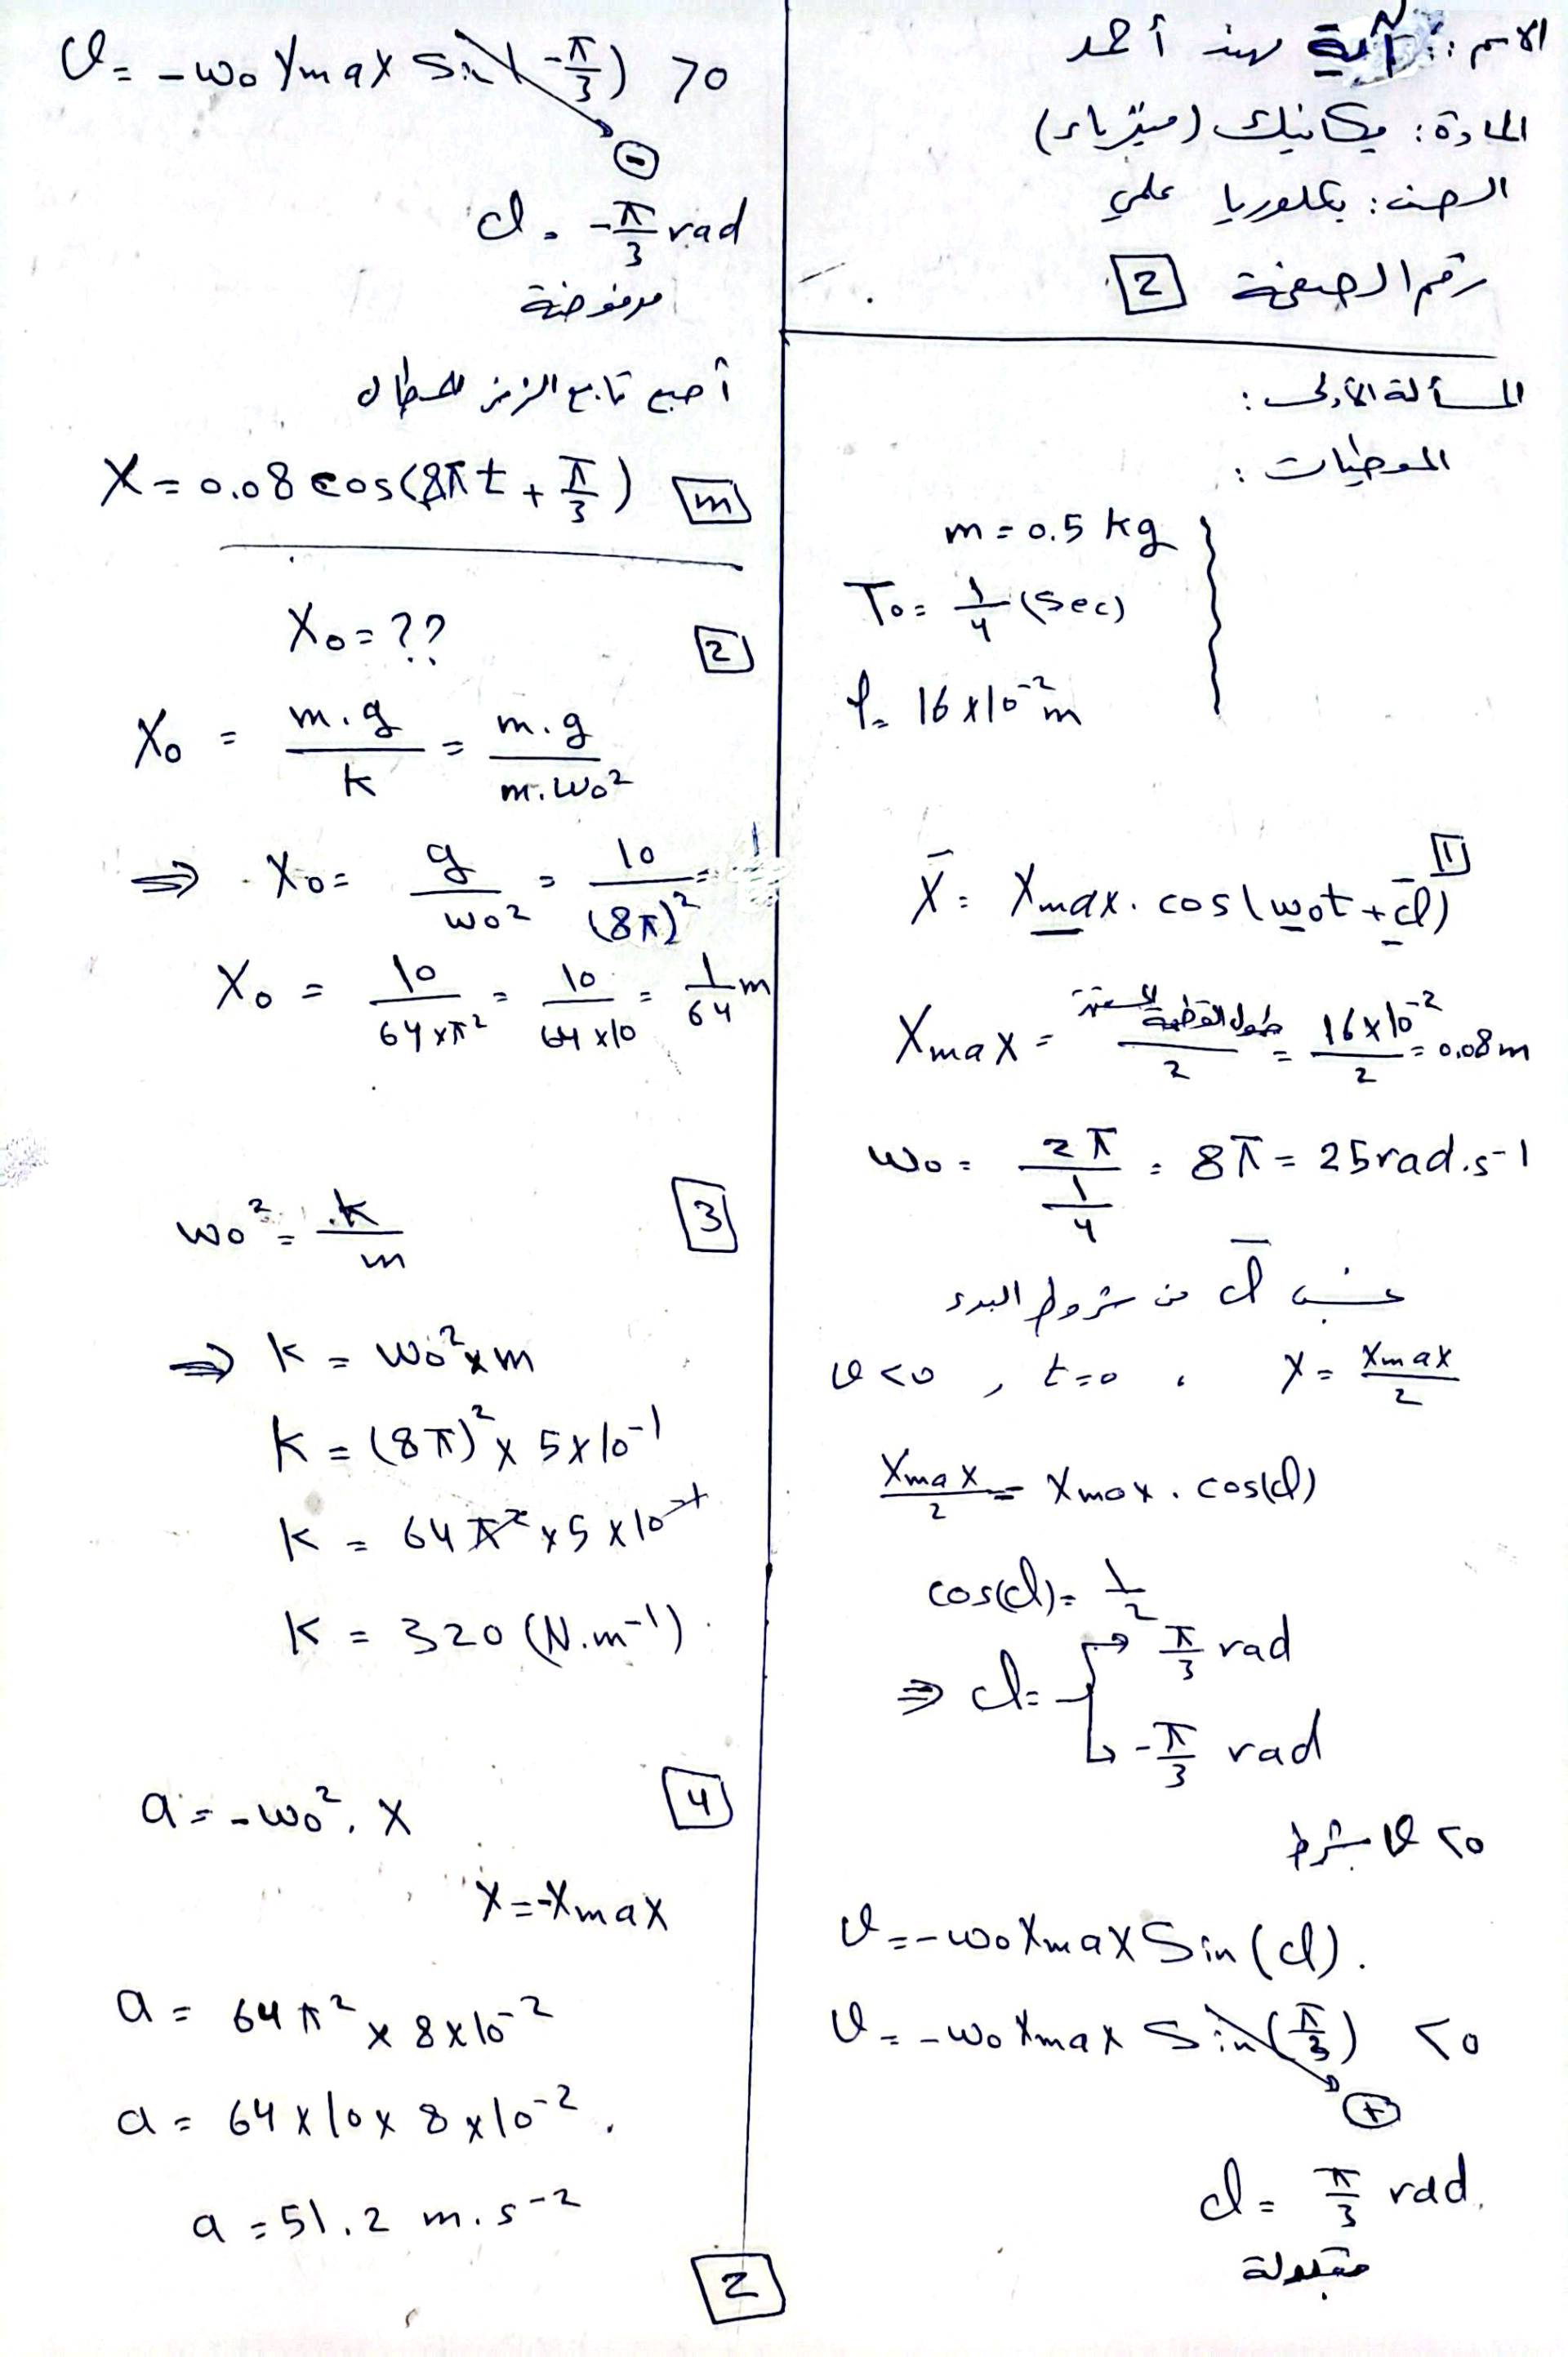 الاسم: آية مهند أحمد
المادة: ميكانيك (فيزياء)
الصف: بكلوريا علمي
رقم الصفحة 2
المسألة الأولى:
المعطيات:
m = 0.5 kg
T₀ = 1/4 (sec)
16 x 10⁻² m
1
X̄ = Xmax. cos(ω₀t + φ̄)
Xmax = طول القطعة المستقيمة / 2 = 16x10⁻² / 2 = 0.08m
ω₀ = 2π / (1/4) = 8π = 25 rad.s-1
φ̄ من شروط البدء
v<0 , t=0 , X = Xmax/2
Xmax/2 = Xmax. cos(φ)
cos(φ) = 1/2
⇒ φ = π/3 rad
-π/3 rad
بشرط v <0
v = -ω₀ Xmax Sin(φ).
v = -ω₀ Xmax Sin(π/3) <0
+
φ = π/3 rad.
مقبولة
v = -ω₀ Xmax Sin(-π/3) >0
-
φ = -π/3 rad
مرفوضة
أصبح تابع الزمني للمطال
X = 0.08 cos(8πt + π/3) m
X₀ = ?? 2
X₀ = m.g / k = m.g / m.ω₀²
⇒ X₀ = g / ω₀² = 10 / (8π)² =
X₀ = 10 / 64xπ² = 10 / 64x10 = 1/64 m
ω₀² = k / m 3
⇒ k = ω₀² x m
k = (8π)² x 5x10⁻¹
k = 64π² x 5 x10⁻¹
k = 320 (N.m⁻¹)
a = -ω₀². X 4
X = -Xmax
a = 64π² x 8x10⁻²
a = 64 x 10 x 8 x10⁻².
a = 51.2 m.s⁻²
2